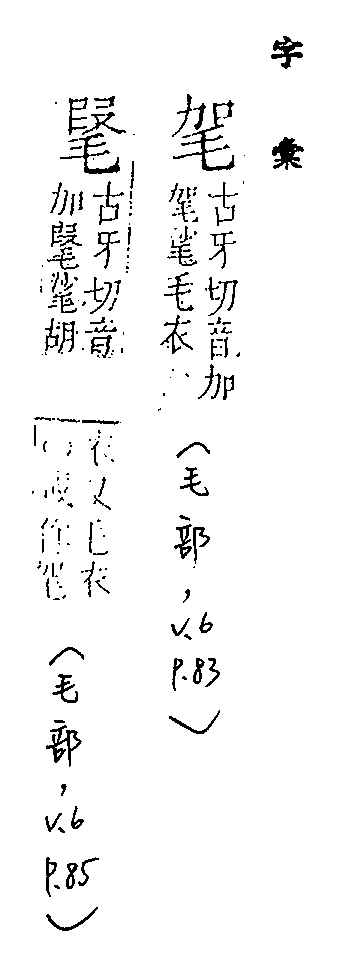 字彙
毠
古牙切音加
毠㲚毛衣
(毛部,v.6 P.83)
毾
古牙切音
加
胡
衣又毛衣
或作毠
(毛部,v.6 P.85)